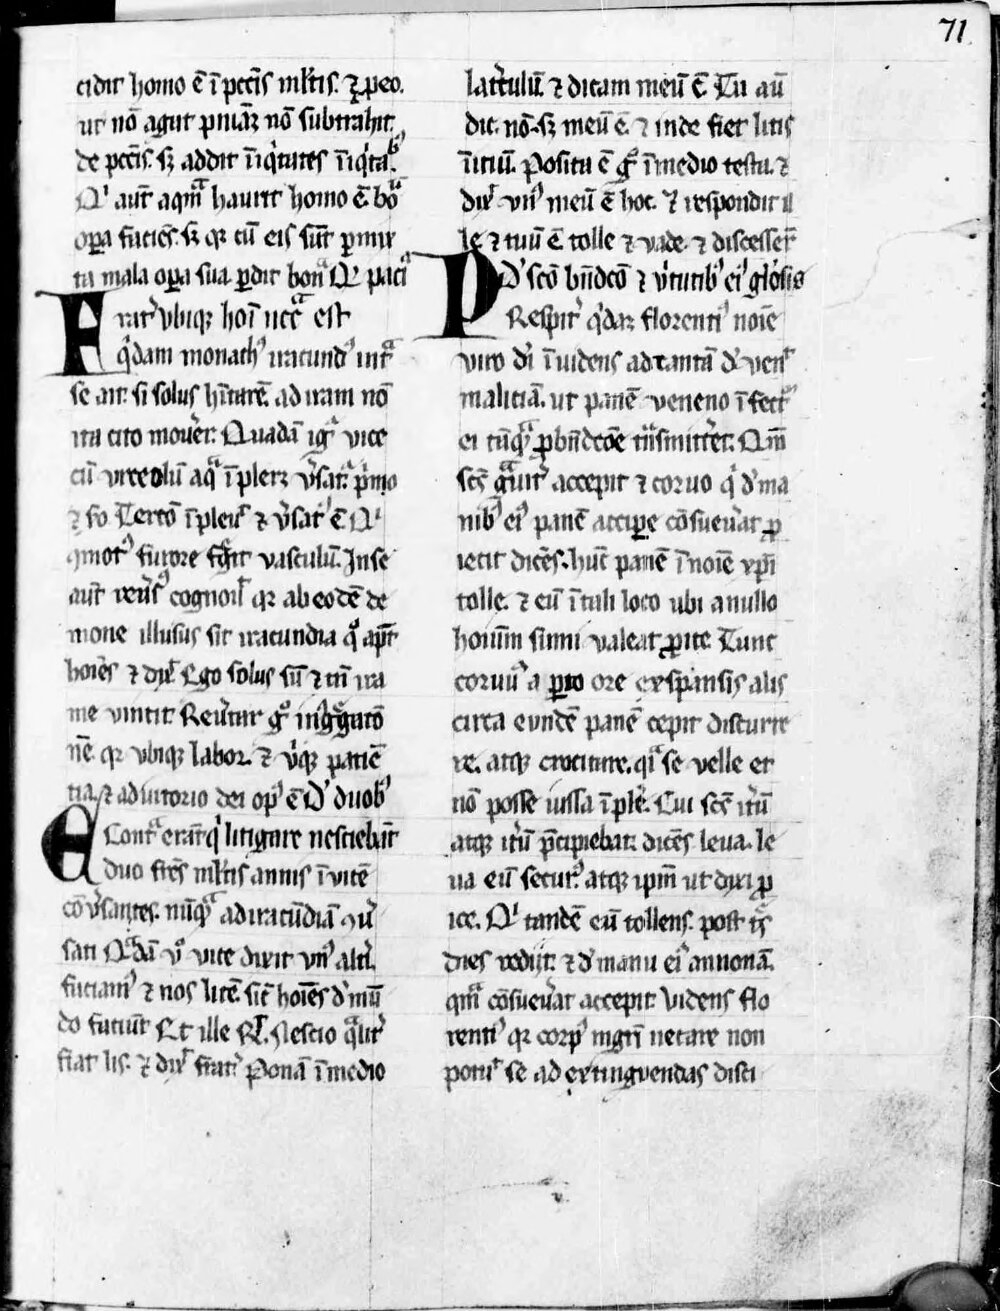 71
cidit homo ē ī pccīs ml̄tis. ⁊ p̱ eo.
ut nō agat pniāꝫ nō subtrahit
de pccīs. sꝫ addit īiq̇tates īiq̇tab᷒
aut̄ aqᷓm haurit homo ē. boᷓ
oꝑa faciēs. sꝫ qꝛ cū eis sūt ꝑmix
ta mala oꝑa sua ꝑdit bonᷓ paciᷓ
Erat᷒ vbiqꝫ hoī nccᷓ est
q̇dam monach᷒ iracund᷒ intᷓ
se ait. si solus hītarē. ad iram nō
ita cito mouer̄. Quadā igᷓ vice
cū vrceolū aqᷓ īpleꝫ v̓sat᷒. p̓mo
⁊ so Tercō īpleu᷒ ⁊ v̓sat᷒ ē
qmot᷒ furore fᷓgit vasculū. In se
aut̄ reūs᷒ cognou᷒ qꝛ ab eodē de
mone illusus sit iracundia apt̄
hoīes ⁊ dix᷒ Ego solus sū ⁊ tn̄ ira
me vincit. Reūtar gͦ in 9gᷓgatō
nē. qꝛ vbiqꝫ labor. ⁊ v̓iqꝫ patiē
tia. ⁊ adiutorio dei op᷒ ē D᷒ duob᷒
Contᷓ erāt q̇ litigare nesciebāt
duo fr̄es ml̄tis annis ī vicē
cōv̓santes. nūqᷓ ad iracūdiā 9u̓
sati Qᷓdā vͦ vice dixit vn᷒ alt̓i.
faciam᷒ ⁊ nos litē. sic̄ hoīes d᷒ mū
do faciūt Et ille R᷒. Nescio qᷓlit᷒
fiat lis. ⁊ dix᷒ frat̓i Ponā ī medio
lat̓culū. ⁊ dicam meū ē Tu aū
dic. nō. sꝫ meū ē. ⁊ inde fiet litis
īitiū. Posita ē gͦ ī medio testa. ⁊
dix᷒ vn᷒ meū ē hoc. ⁊ respondit il
le ⁊ tuū ē tolle ⁊ vade. ⁊ discesser̄
D᷒ scō bn̄dcō ⁊ v̓tutib᷒ ei᷒ gl̓osis
Presbit᷒ q̇daꝫ florenti᷒ noīe
viro dī īuidens ad tantā d᷒ven᷒
maliciā. ut panē veneno īfect᷒
ei tāqᷓ ꝓ bn̄dcōe tn̄smitt̓et. Qm̄
scs̄ gᷓuit᷒ accepit ⁊ coruo q̇ d᷒ ma
nib᷒ ei᷒ panē accipe cōsueu̓at ꝓ
iecit dicēs. hūc panē ī noīe xp̄i
tolle. ⁊ eū ī tali loco ubi a nullo
hoīum sumi valeat ꝓice Tunc
coruu᷒ aꝑto ore expansis alis
circa eundē panē cepit discurre
re. atqꝫ crocitare. qᷓi se velle et
nō posse iussa īplē. Cui scs̄ it̓ū
atqꝫ it̓ū p̄cipiebat dicēs leua. le
ua eū secur᷒ atqꝫ ipm̄ ut dixi ꝓ
ice. tandē eū tollens. post tᷓs
dies rediit. ⁊ d᷒ manu ei᷒ annonā.
qm̄ cōsueu̓at accepit. Videns flo
renti᷒ qꝛ corp᷒ mgrī necare non
potu᷒ se ad extinguendas disci